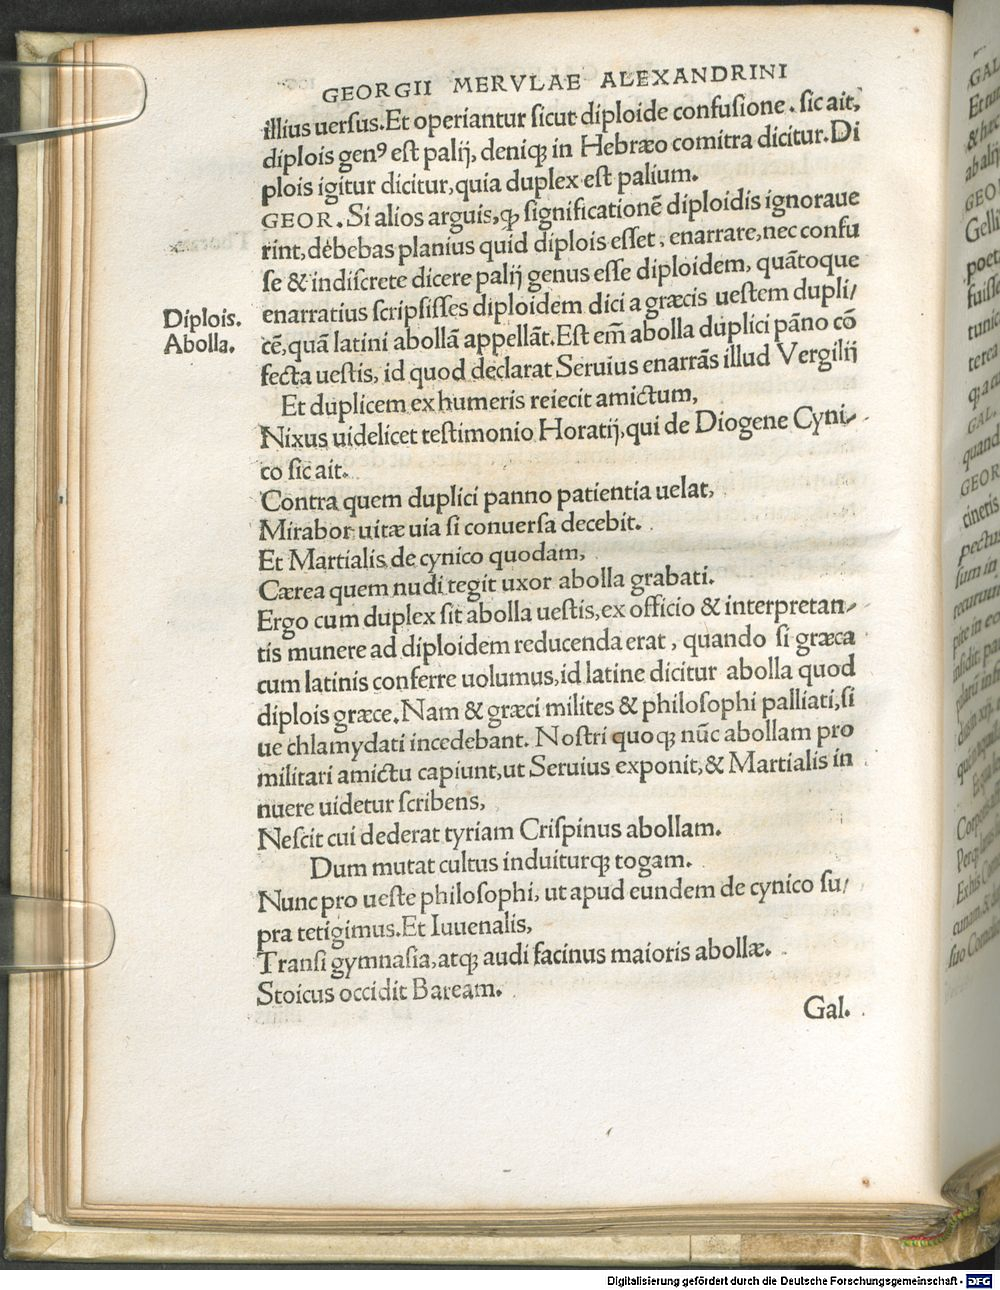 GEORGII MERVLAE ALEXANDRINI
illius uersus. Et operiantur sicut diploide confusione. sic ait,
diplois genꝰ est palij, deniqꝫ in Hebræo comitra dicitur. Di
plois igitur dicitur, quia duplex est palium.
GEOR. Si alios arguis, ꝙ significationẽ diploidis ignoraue
rint, debebas planius quid diplois esset, enarrare, nec confu
se & indiscrete dicere palij genus esse diploidem, quãtoque
enarratius scripsisses diploidem dici a græcis uestem dupli/
cẽ, quã latini abollã appellãt. Est em̃ abolla duplici pãno cõ
fecta uestis, id quod declarat Seruius enarrãs illud Vergilij
Et duplicem ex humeris reiecit amictum,
Nixus uidelicet testimonio Horatij, qui de Diogene Cyni/
co sic ait.
Contra quem duplici panno patientia uelat,
Mirabor uitæ uia si conuersa decebit.
Et Martialis de cynico quodam,
Cærea quem nudi tegit uxor abolla grabati.
Ergo cum duplex sit abolla uestis, ex officio & interpretan/
tis munere ad diploidem reducenda erat, quando si græca
cum latinis conferre uolumus, id latine dicitur abolla quod
diplois græce. Nam & græci milites & philosophi palliati, si
ue chlamydati incedebant. Nostri quoqꝫ nũc abollam pro
militari amictu capiunt, ut Seruius exponit, & Martialis in
nuere uidetur scribens,
Nescit cui dederat tyriam Crispinus abollam.
Dum mutat cultus induiturqꝫ togam.
Nunc pro ueste philosophi, ut apud eundem de cynico su/
pra tetigimus. Et Iuuenalis,
Transi gymnasia, atqꝫ audi facinus maioris abollæ.
Stoicus occidit Baream.
Gal.
Diplois.
Abolla.
GAL
Et tun
& hæc
ab alij
GEO
Gelli
poet
fuisse
tunic
terea
GAL.
quand
GEOR
cineris
pectus
sum in
Digitalisierung gefördert durch die Deutsche Forschungsgemeinschaft - DFG